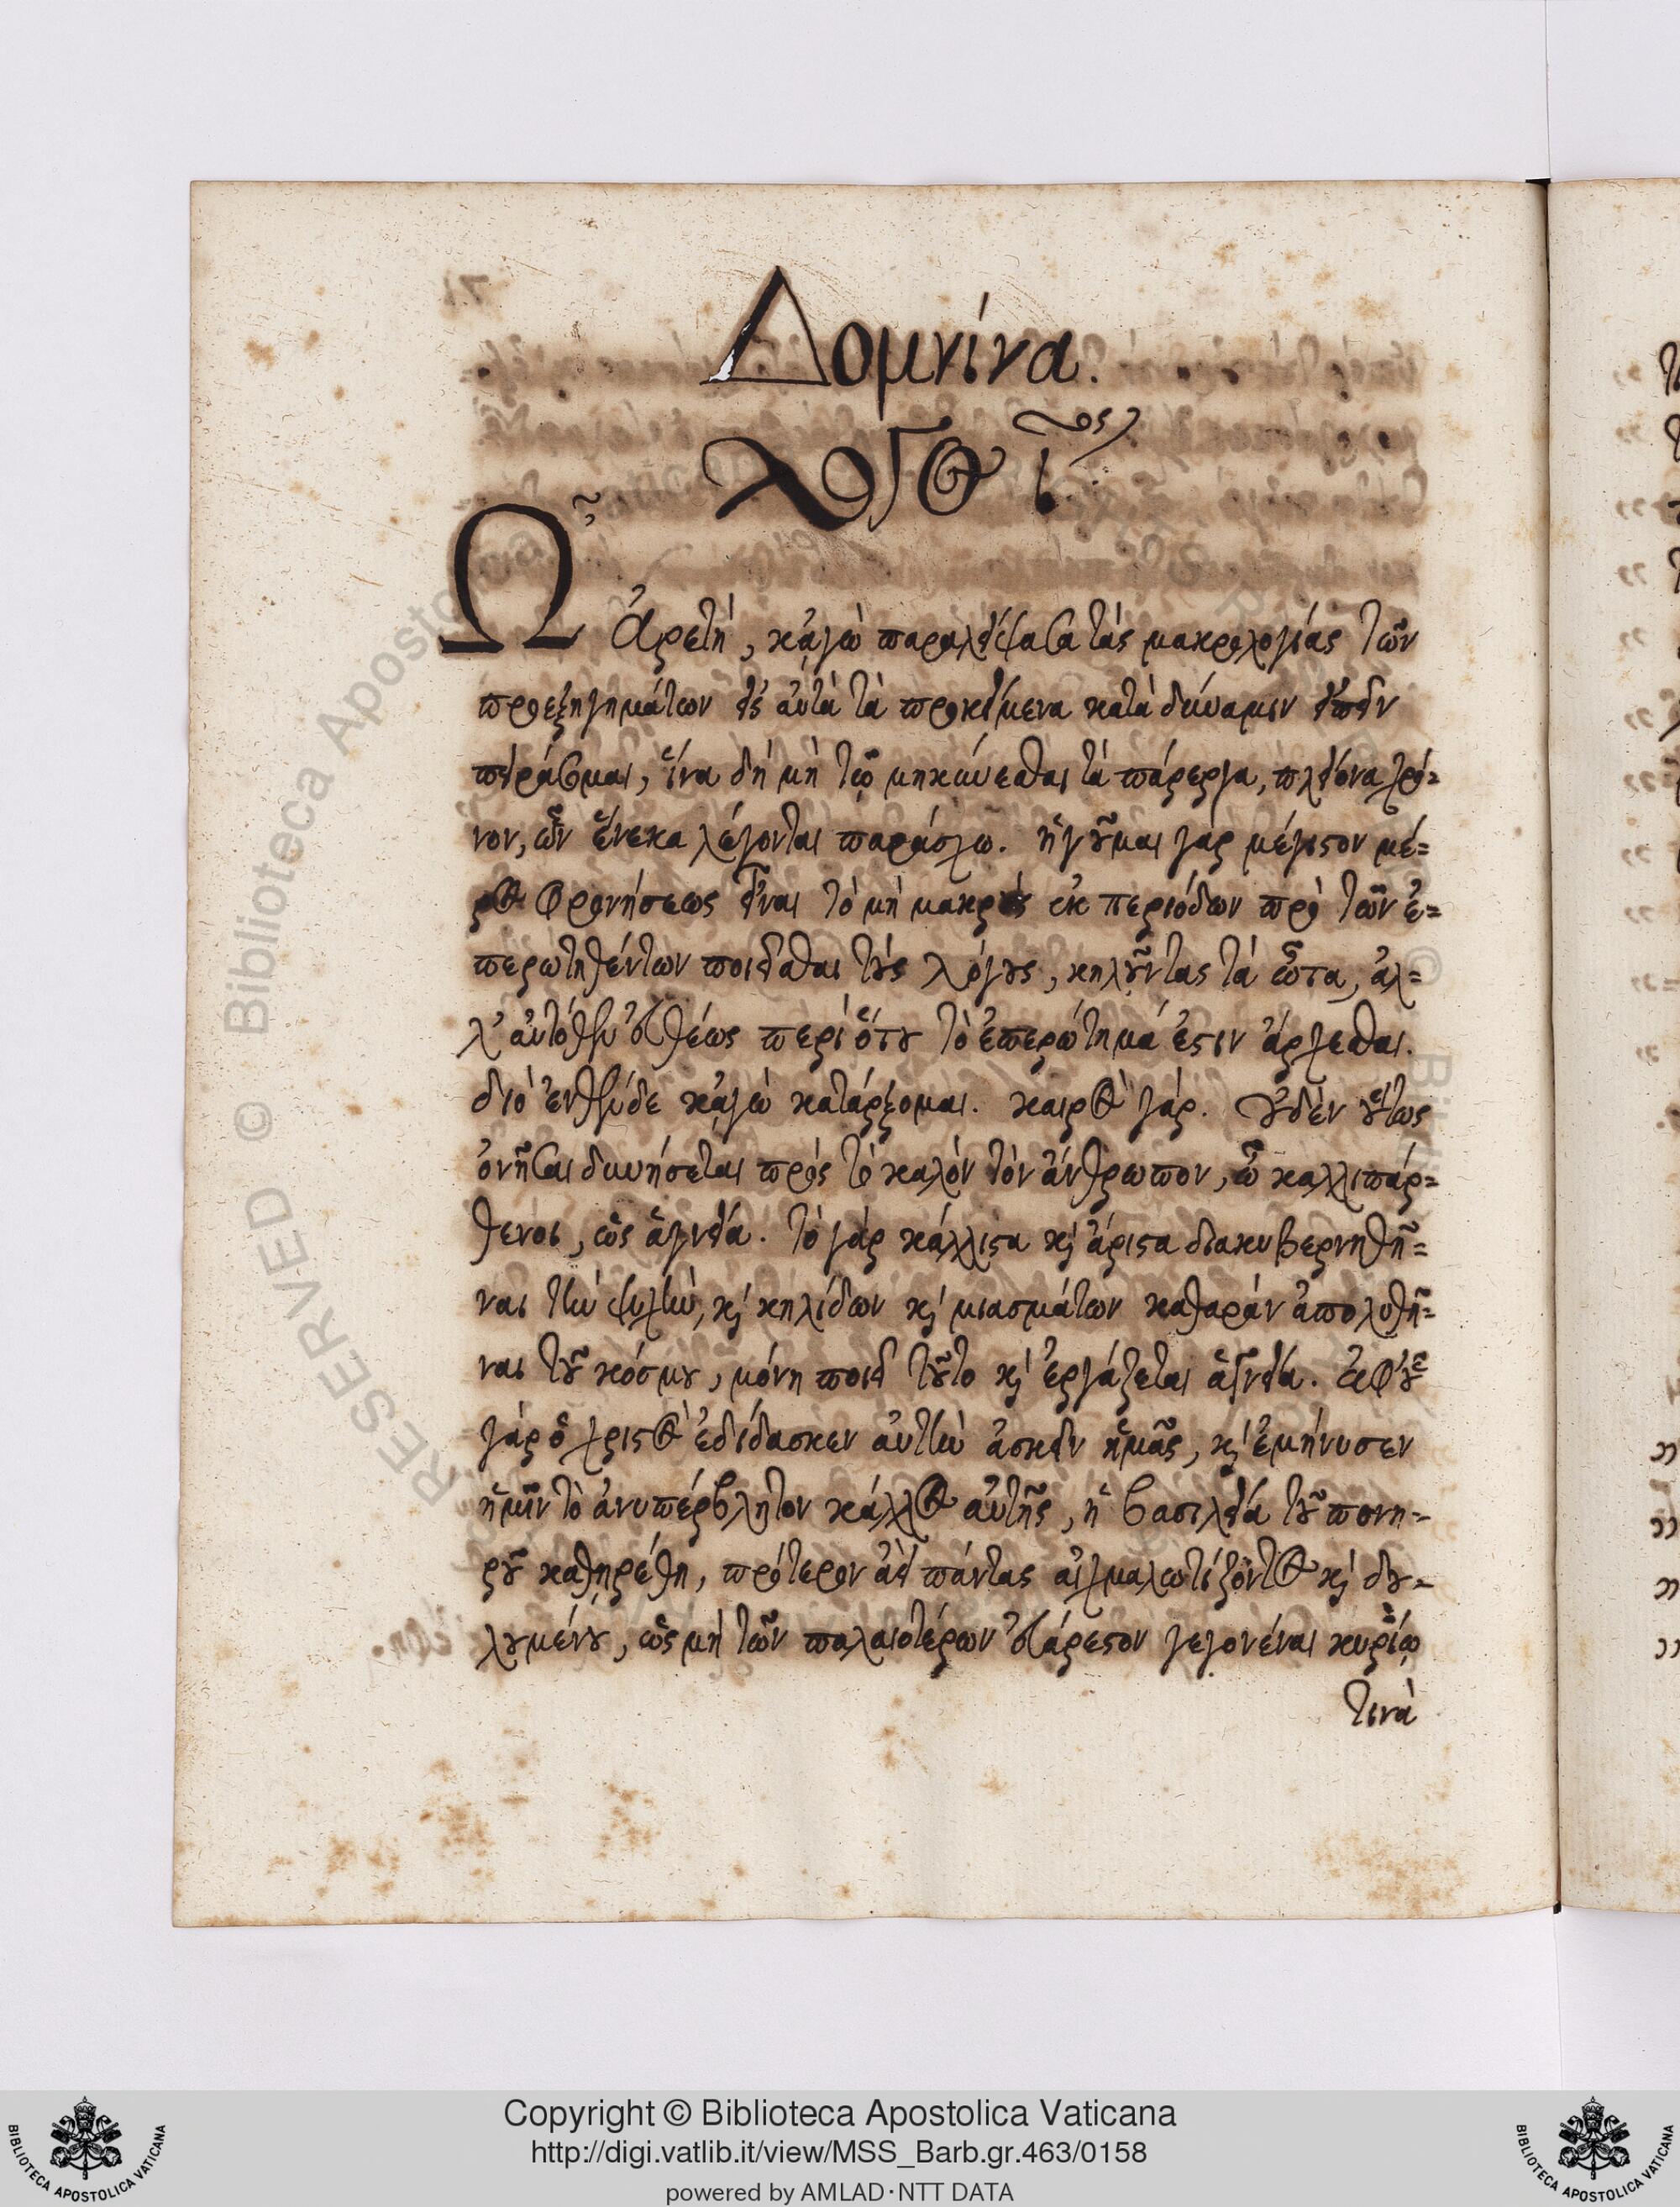 Δομνίνα.
Λόγος ι^ος
Ὦ Ἀρετή, κᾀγὼ παραλείψασα τὰς μακρολογίας τῶν
προεξηγημάτων εἰς αὐτὰ τὰ προκείμενα κατὰ δύναμιν εἰπεῖν
πειράσομαι, ἵνα δὴ μὴ τῷ μηκύνεσθαι τὰ πάρεργα, πλείονα χρό=
νον, ὧν ἕνεκα λέγονται παράσχω. ἡγοῦμαι γὰρ μέγιστον μέ=
ρος φρονήσεως εἶναι τὸ μὴ μακρὰς ἐκ περιόδων πρὸ τῶν ἐ=
περωτηθέντων ποιεῖσθαι τοὺς λόγους, κηλοῦντας τὰ ὦτα, ἀλ=
λ' αὐτόθεν εὐθέως περὶ ὅτου τὸ ἐπερώτημά ἐστιν ἄρχεσθαι.
διὸ ἐνθένδε κᾀγὼ κατάρξομαι. καιρὸς γάρ. Οὐδὲν οὕτως
ὀνῆσαι δυνήσεται πρὸς τὸ καλὸν τὸν ἄνθρωπον, ὦ καλλιπάρ=
θενοι, ὡς ἁγνεία. τὸ γὰρ κάλλιστα κ̀ ἄριστα διακυβερνηθῆ=
ναι τὴν ψυχὴν, κ̀ κηλίδων κ̀ μιασμάτων καθαρὰν ἀπολυθῆ=
ναι τοῦ κόσμου, μόνη ποιεῖ τοῦτο κ̀ ἐργάζεται ἁγνεία. ἐφ' οὗ
γὰρ ὁ χριστὸς ἐδίδασκεν αὐτὴν ἀσκεῖν ἡμᾶς, κ̀ ἐμήνυσεν
ἡμῖν τὸ ἀνυπέρβλητον κάλλος αὐτῆς, ἡ βασιλεία τοῦ πονη=
ροῦ καθῃρέθη, πρότερον ἀεὶ πάντας αἰχμαλωτίζοντος κ̀ δου=
λουμένου, ὡς μὴ τῶν παλαιοτέρων εὐάρεστον γεγονέναι κυρίῳ
τινὰ
Copyright © Biblioteca Apostolica Vaticana
http://digi.vatlib.it/view/MSS_Barb.gr.463/0158
powered by AMLAD·NTT DATA